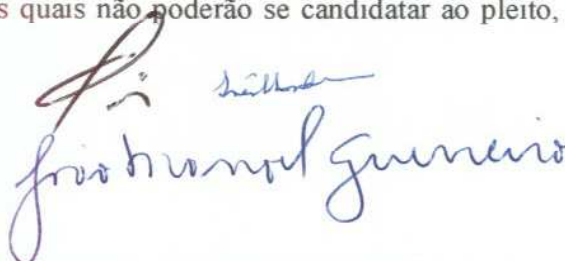 s quais não poderão se candidatar ao pleito,
João Manoel Guerreiro